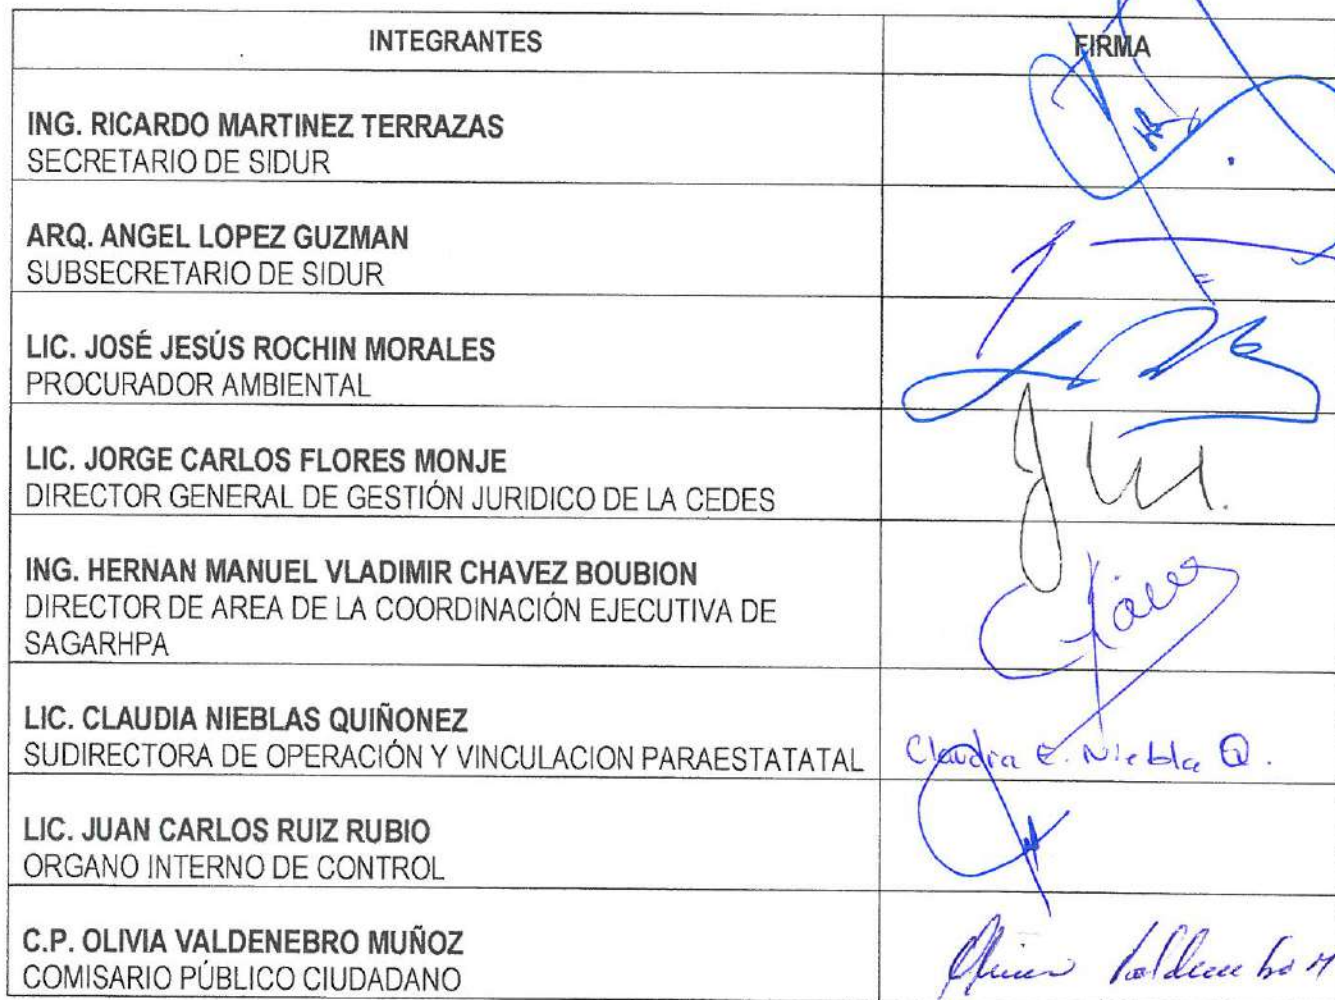 INTEGRANTES FIRMA
ING. RICARDO MARTINEZ TERRAZAS
SECRETARIO DE SIDUR
ARQ. ANGEL LOPEZ GUZMAN
SUBSECRETARIO DE SIDUR
LIC. JOSÉ JESÚS ROCHIN MORALES
PROCURADOR AMBIENTAL
LIC. JORGE CARLOS FLORES MONJE
DIRECTOR GENERAL DE GESTIÓN JURIDICO DE LA CEDES
ING. HERNAN MANUEL VLADIMIR CHAVEZ BOUBION
DIRECTOR DE AREA DE LA COORDINACIÓN EJECUTIVA DE
SAGARHPA
LIC. CLAUDIA NIEBLAS QUIÑONEZ
SUDIRECTORA DE OPERACIÓN Y VINCULACION PARAESTATATAL
Claudia E. Niebla Q.
LIC. JUAN CARLOS RUIZ RUBIO
ORGANO INTERNO DE CONTROL
C.P. OLIVIA VALDENEBRO MUÑOZ
COMISARIO PÚBLICO CIUDADANO